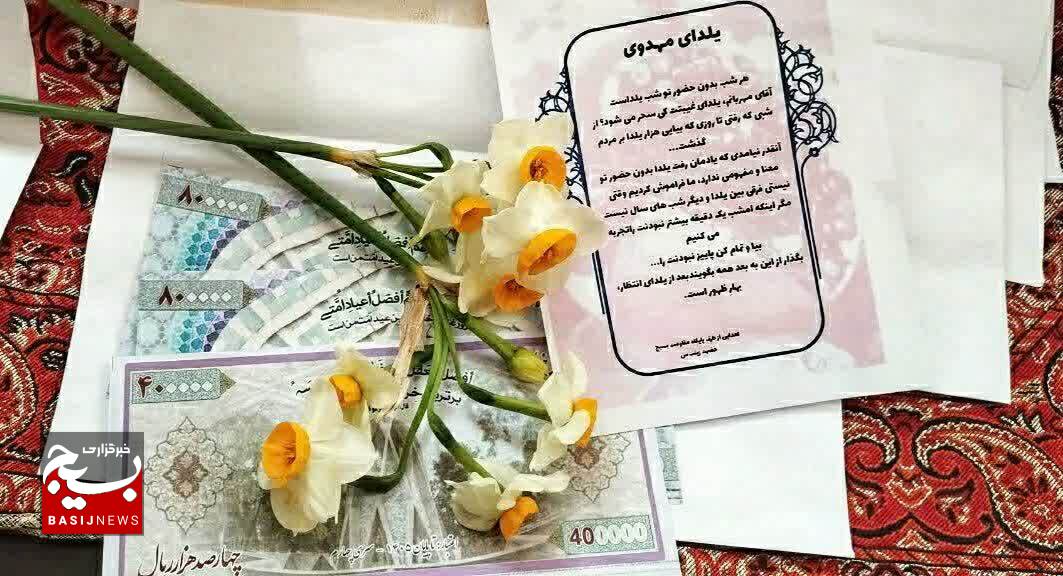 یلدای مهدوی
هر شب بدون حضور تو شب یلداست
آقای مهربانم، یلدای غیبتت کی سحر می شود؟ از
شبی که رفتی تا روزی که بیایی هزار یلدا بر مردم
گذشت...
آنقدر نیامدی که یادمان رفت یلدا بدون حضور تو
معنا و مفهومی ندارد، ما فراموش کردیم وقتی
نیستی فرقی بین یلدا و دیگر شب های سال نیست
مگر اینکه امشب یک دقیقه بیشتر نبودنت راتجربه
می کنیم
بیا و تمام کن پاییز نبودنت را...
بگذار از این به بعد همه بگویندبعد از یلدای انتظار،
بهار ظهور است.
اهدایی از طرف پایگاه مقاومت بسیج
۸۰۰۰۰۰
أفضل أعیاد أمتي
عید امت من است
۸۰۰۰۰۰
أفضل أعیاد أمتي
عید امت من است
۴۰۰۰۰۰
400000
اعتبار تا پایان ۱۴۰۵ - سری چهارم
چهارصد هزار ریال
خبرگزاری
بسیج
BASIJNEWS